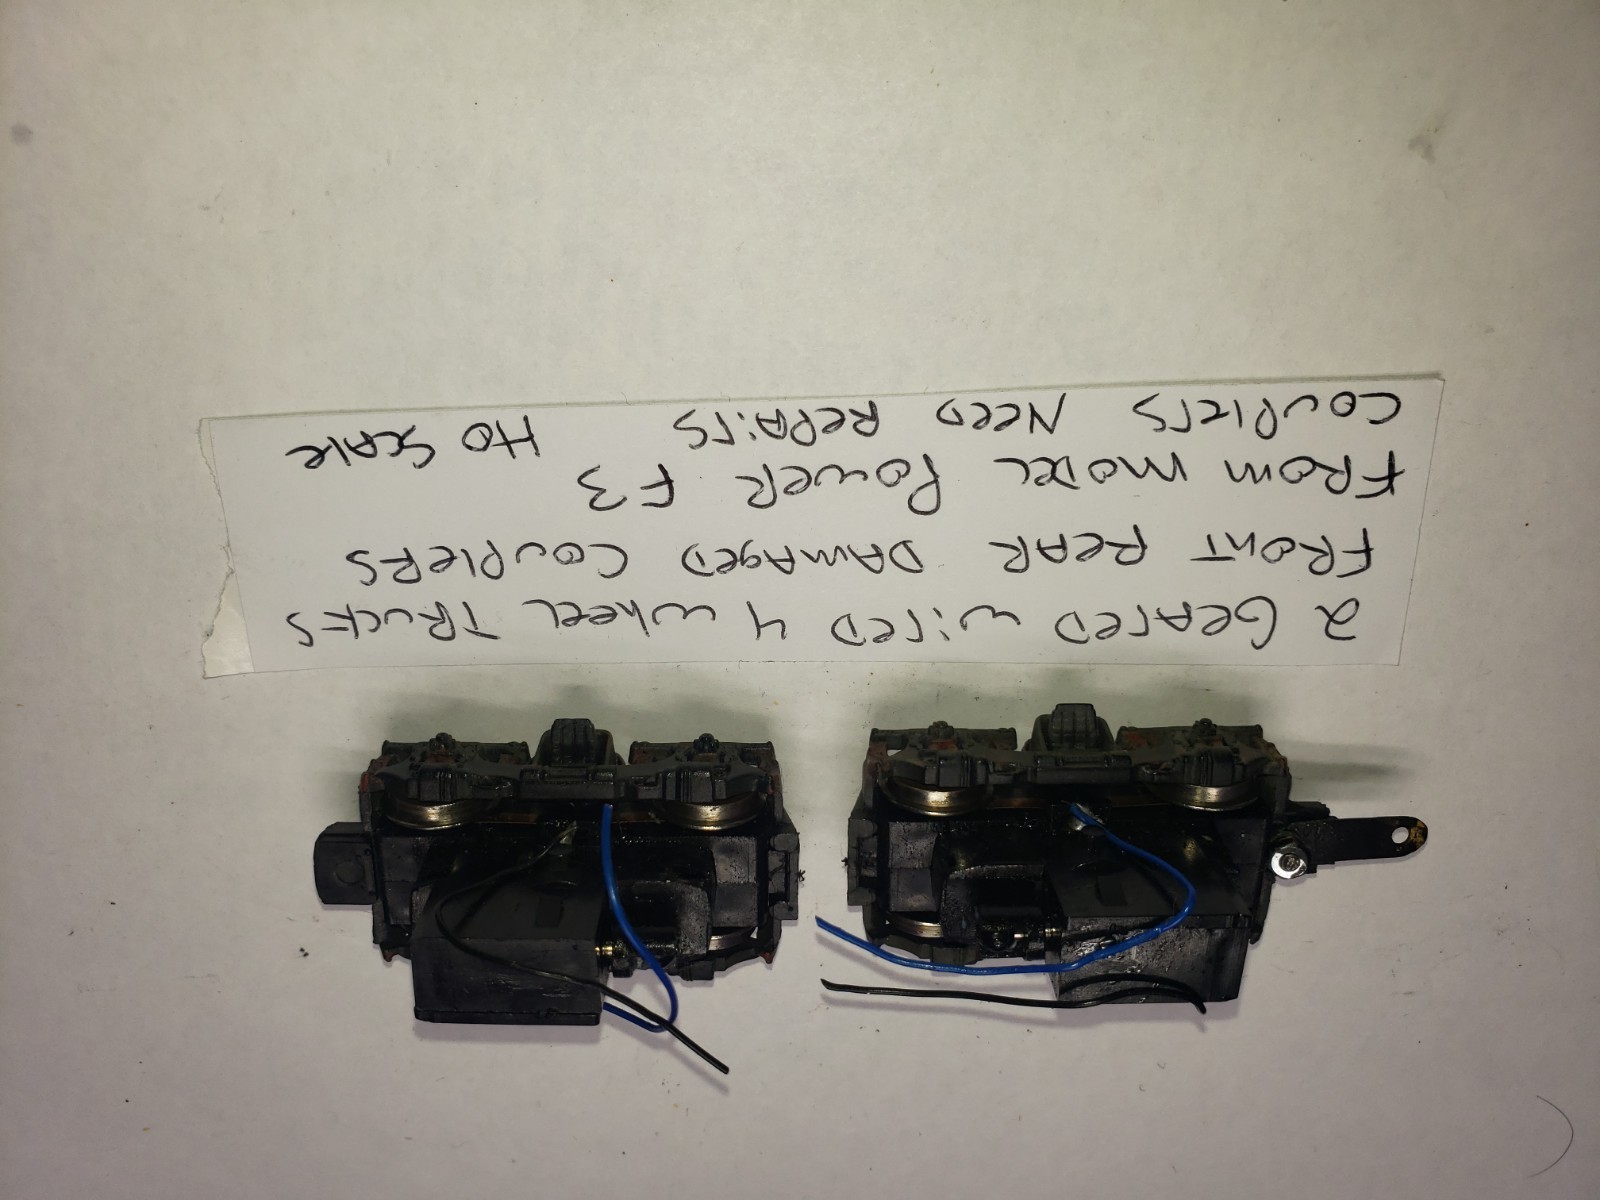 2 GEArED wirED 4 wHEEL TRUCKS
FRONT REAR DAMAgED COUPlERS
FROM MODEL POWER F3
COUPlErS NEED REPAirS HO ScAle